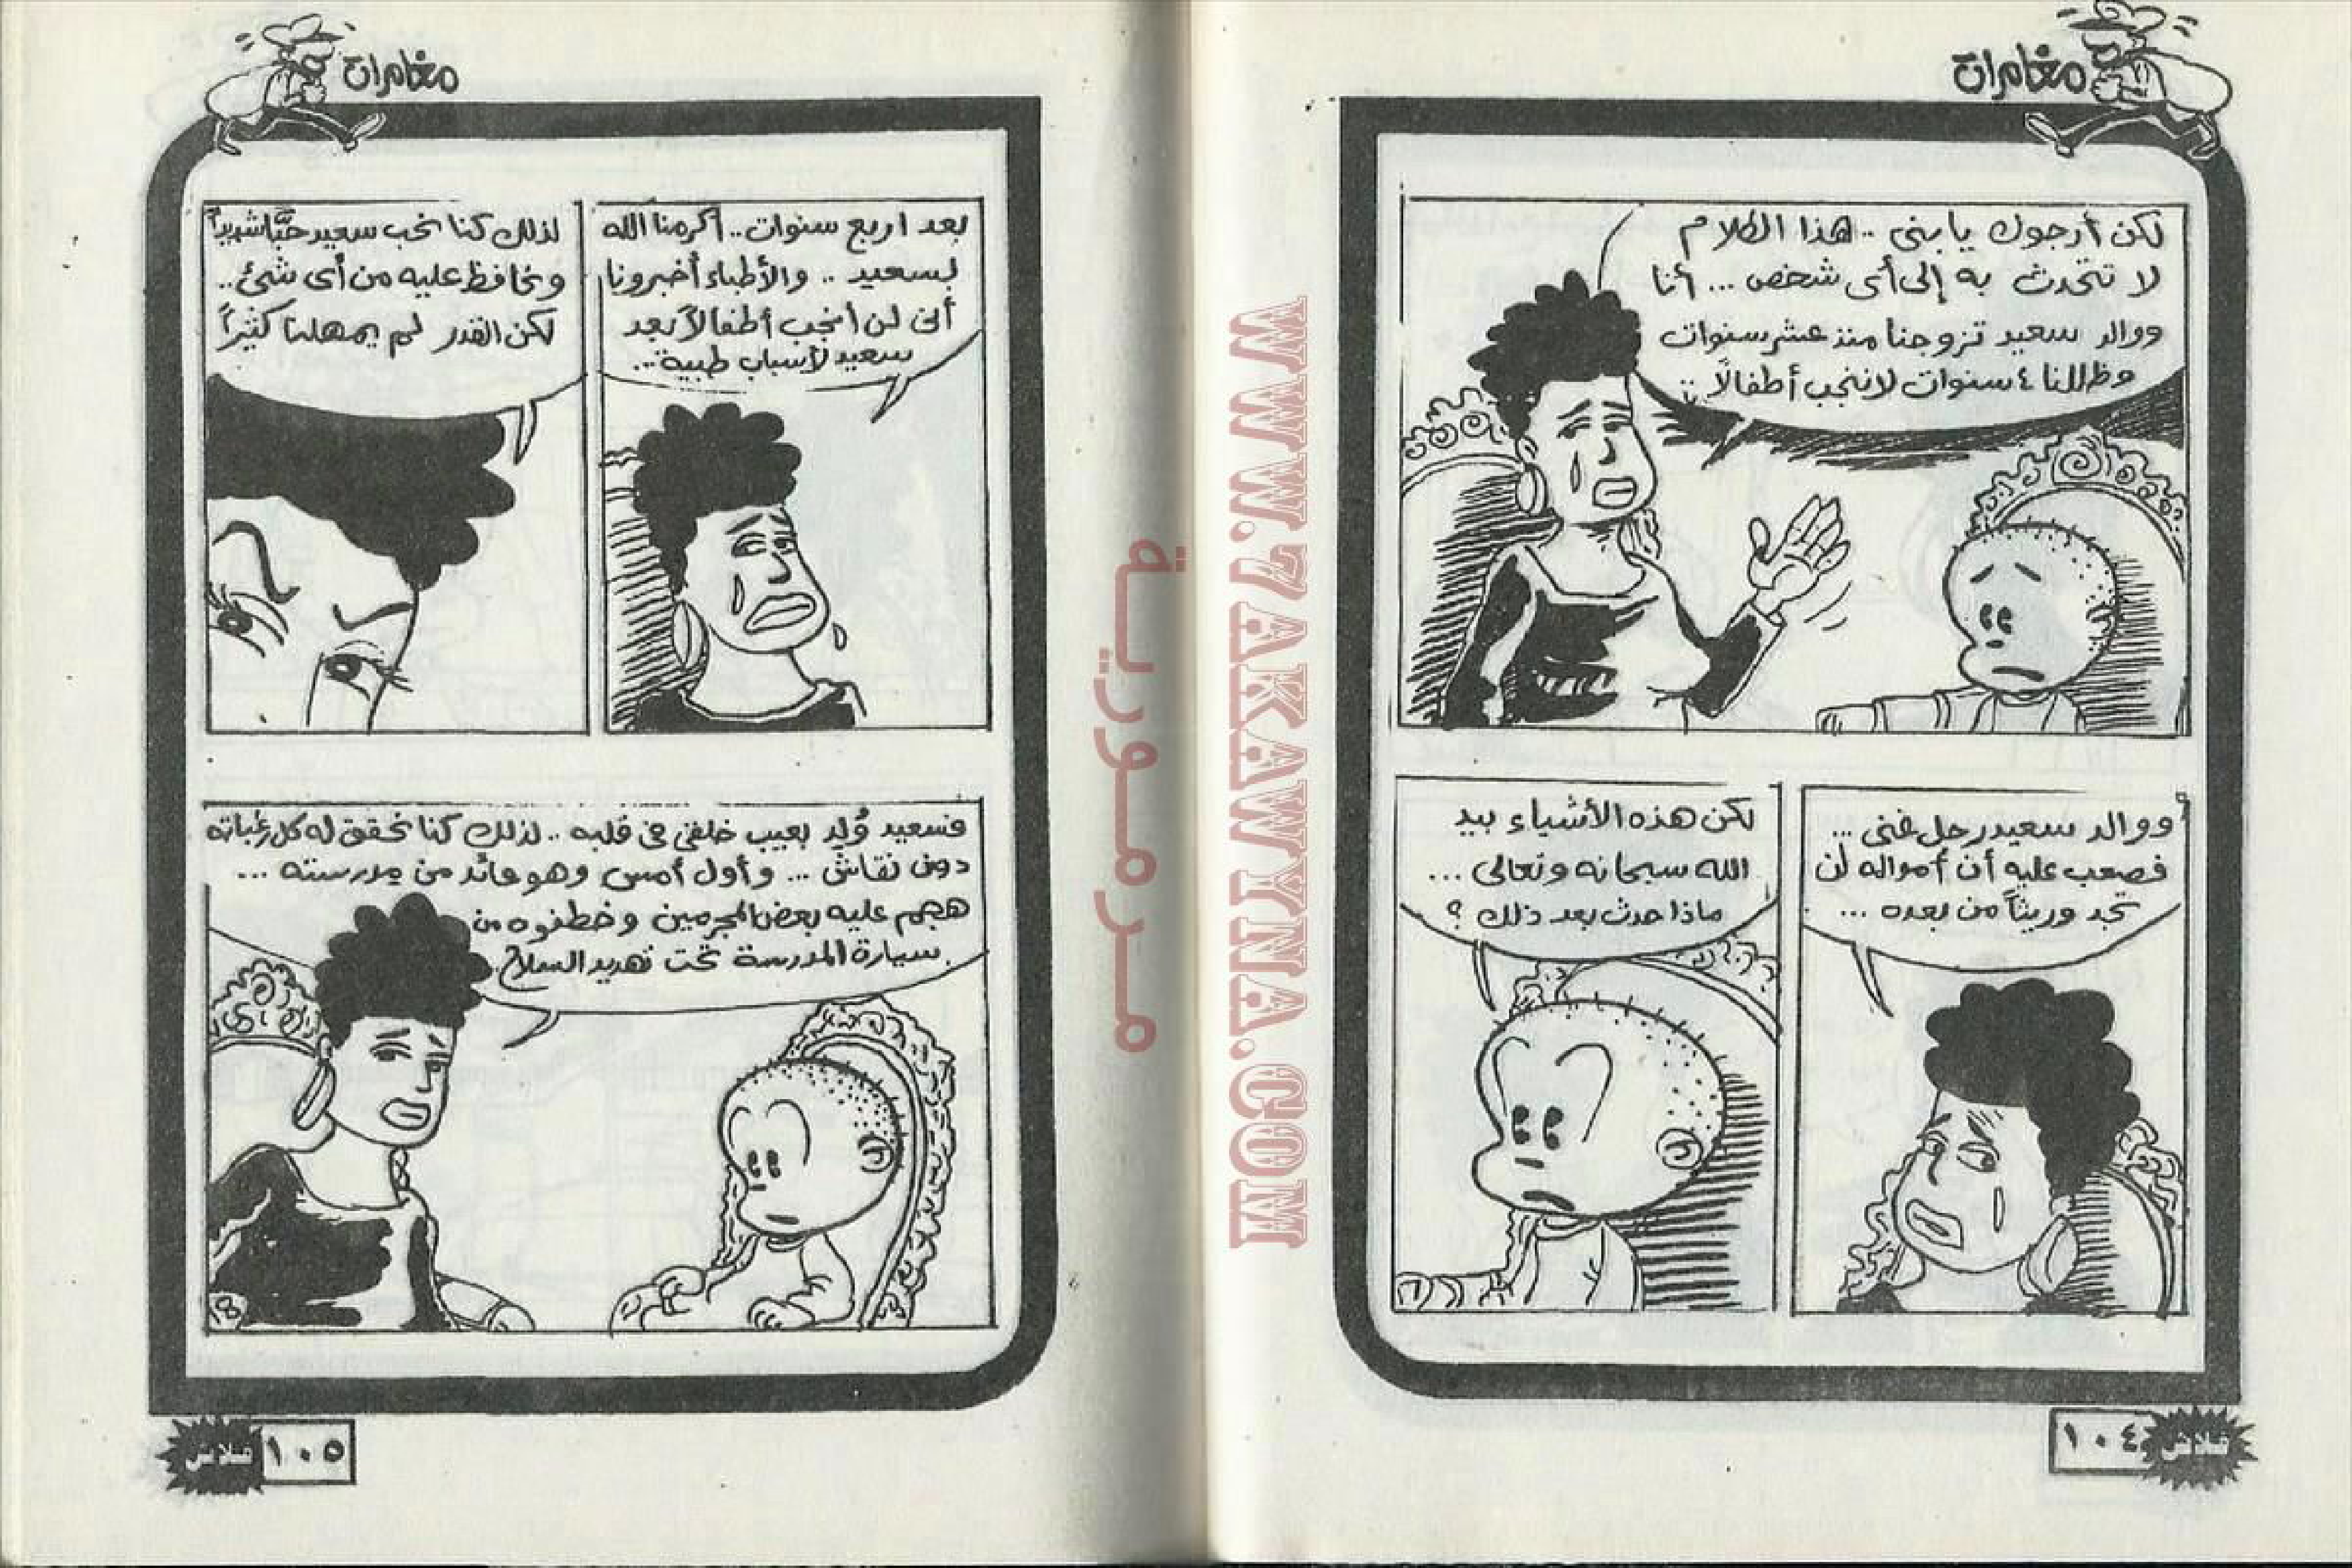 مغامرات
لكن أرجوك يا بنى .. هذا الكلام
لا تتحدث به إلى أى شخص ... أنا
ووالد سعيد تزوجنا منذ عشر سنوات
وظللنا ٤ سنوات لا ننجب أطفالاً ..
ووالد سعيد رجل غنى ...
فصعب عليه أن أمواله لن
تجد وريثاً من بعده ...
لكن هذه الأشياء بيد
الله سبحانه وتعالى ...
ماذا حدث بعد ذلك ؟
١٠٤
فلاش
WWW.7AKAWYNA.COM
مرمورية
مغامرات
بعد اربع سنوات .. أكرمنا الله
بسعيد .. والأطباء أخبرونا
أنى لن أنجب أطفالاً بعد
سعيد لأسباب طبية ...
لذلك كنا نحب سعيد حبَّاً شديداً
ونحافظ عليه من أى شئ ..
لكن القدر لم يمهلنا كثيراً
فسعيد وُلد بعيب خلقى فى قلبه .. لذلك كنا نحقق له كل رغباته
دون نقاش ... وأول أمس وهو عائد من مدرسته ...
هجم عليه بعض المجرمين وخطفوه من
سيارة المدرسة تحت تهديد السلاح
١٠٥
فلاش